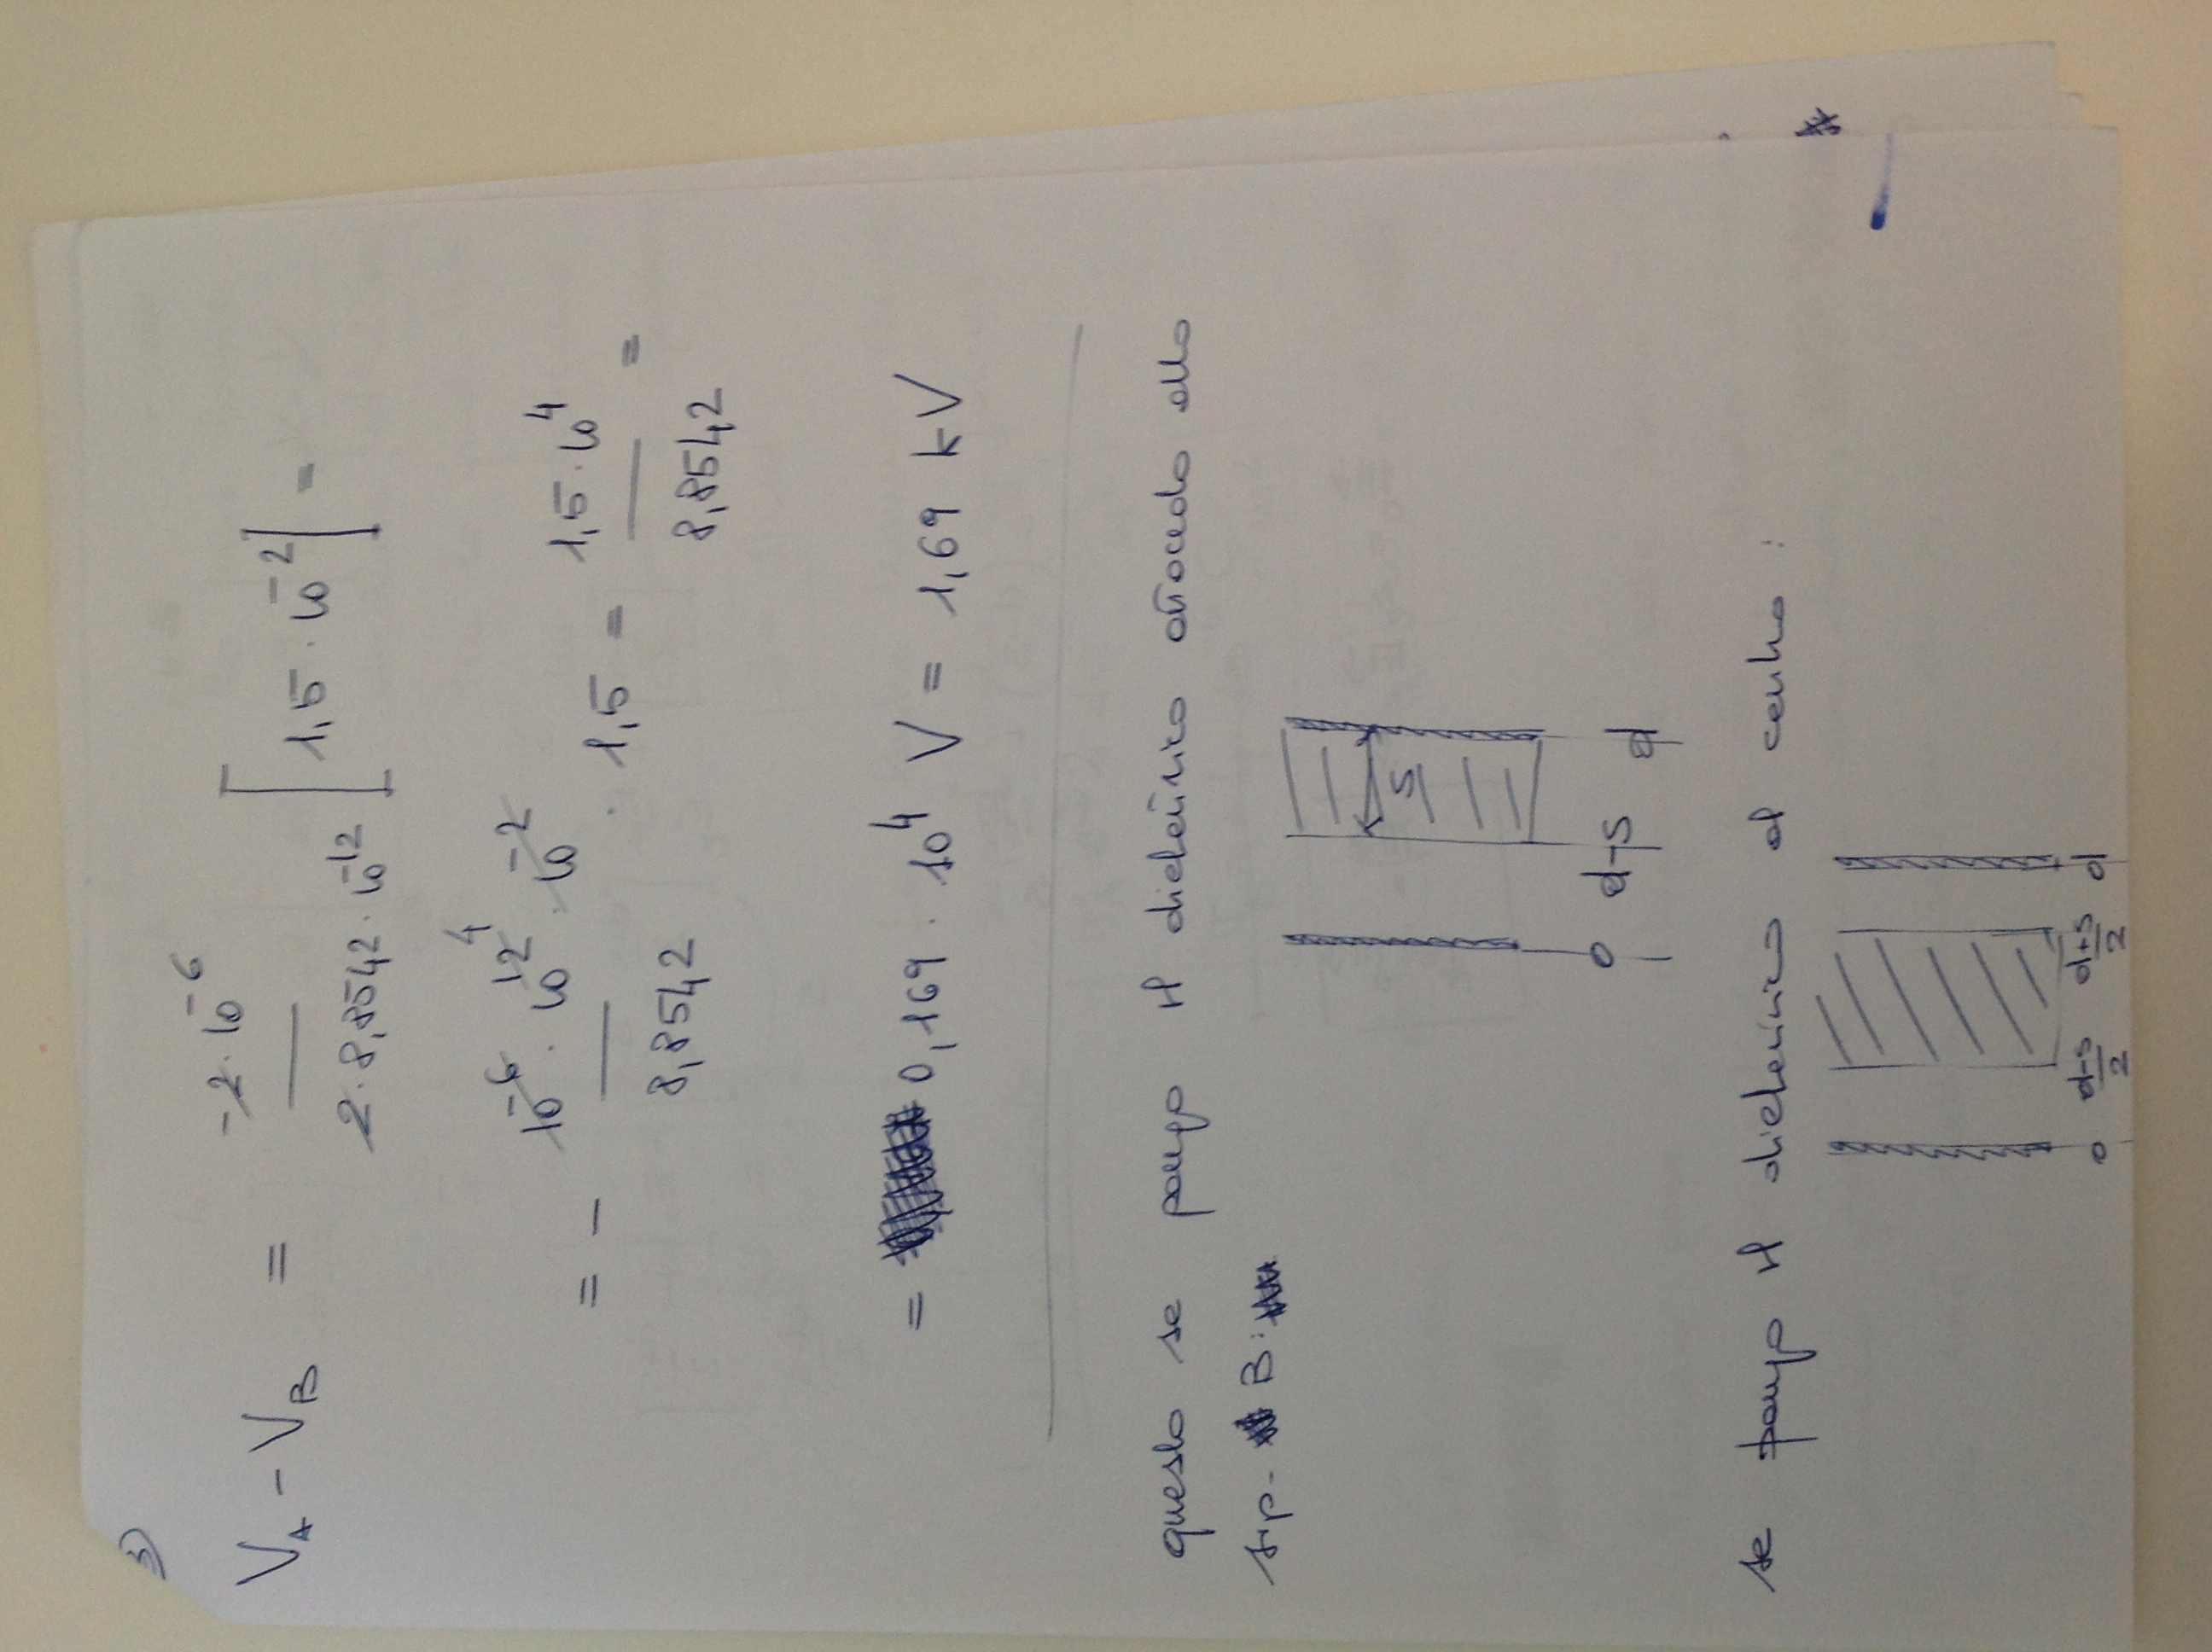 3)
V_A - V_B = \frac{-2 \cdot 10^{-6}}{2 \cdot 8,8542 \cdot 10^{-12}} [1,5 \cdot 10^{-2}] =
= - \frac{10^{-6} \cdot 10^{12^4} \cdot 10^{-2}}{8,8542} \cdot 1,5 = \frac{1,5 \cdot 10^4}{8,8542} =
= 0,169 \cdot 10^4 V = 1,69 kV
questo se pongo il dielettrico attaccato alla
sup. B:
s
0 d-s d
se pongo il dielettrico al centro:
0 \frac{d-s}{2} \frac{d+s}{2} d